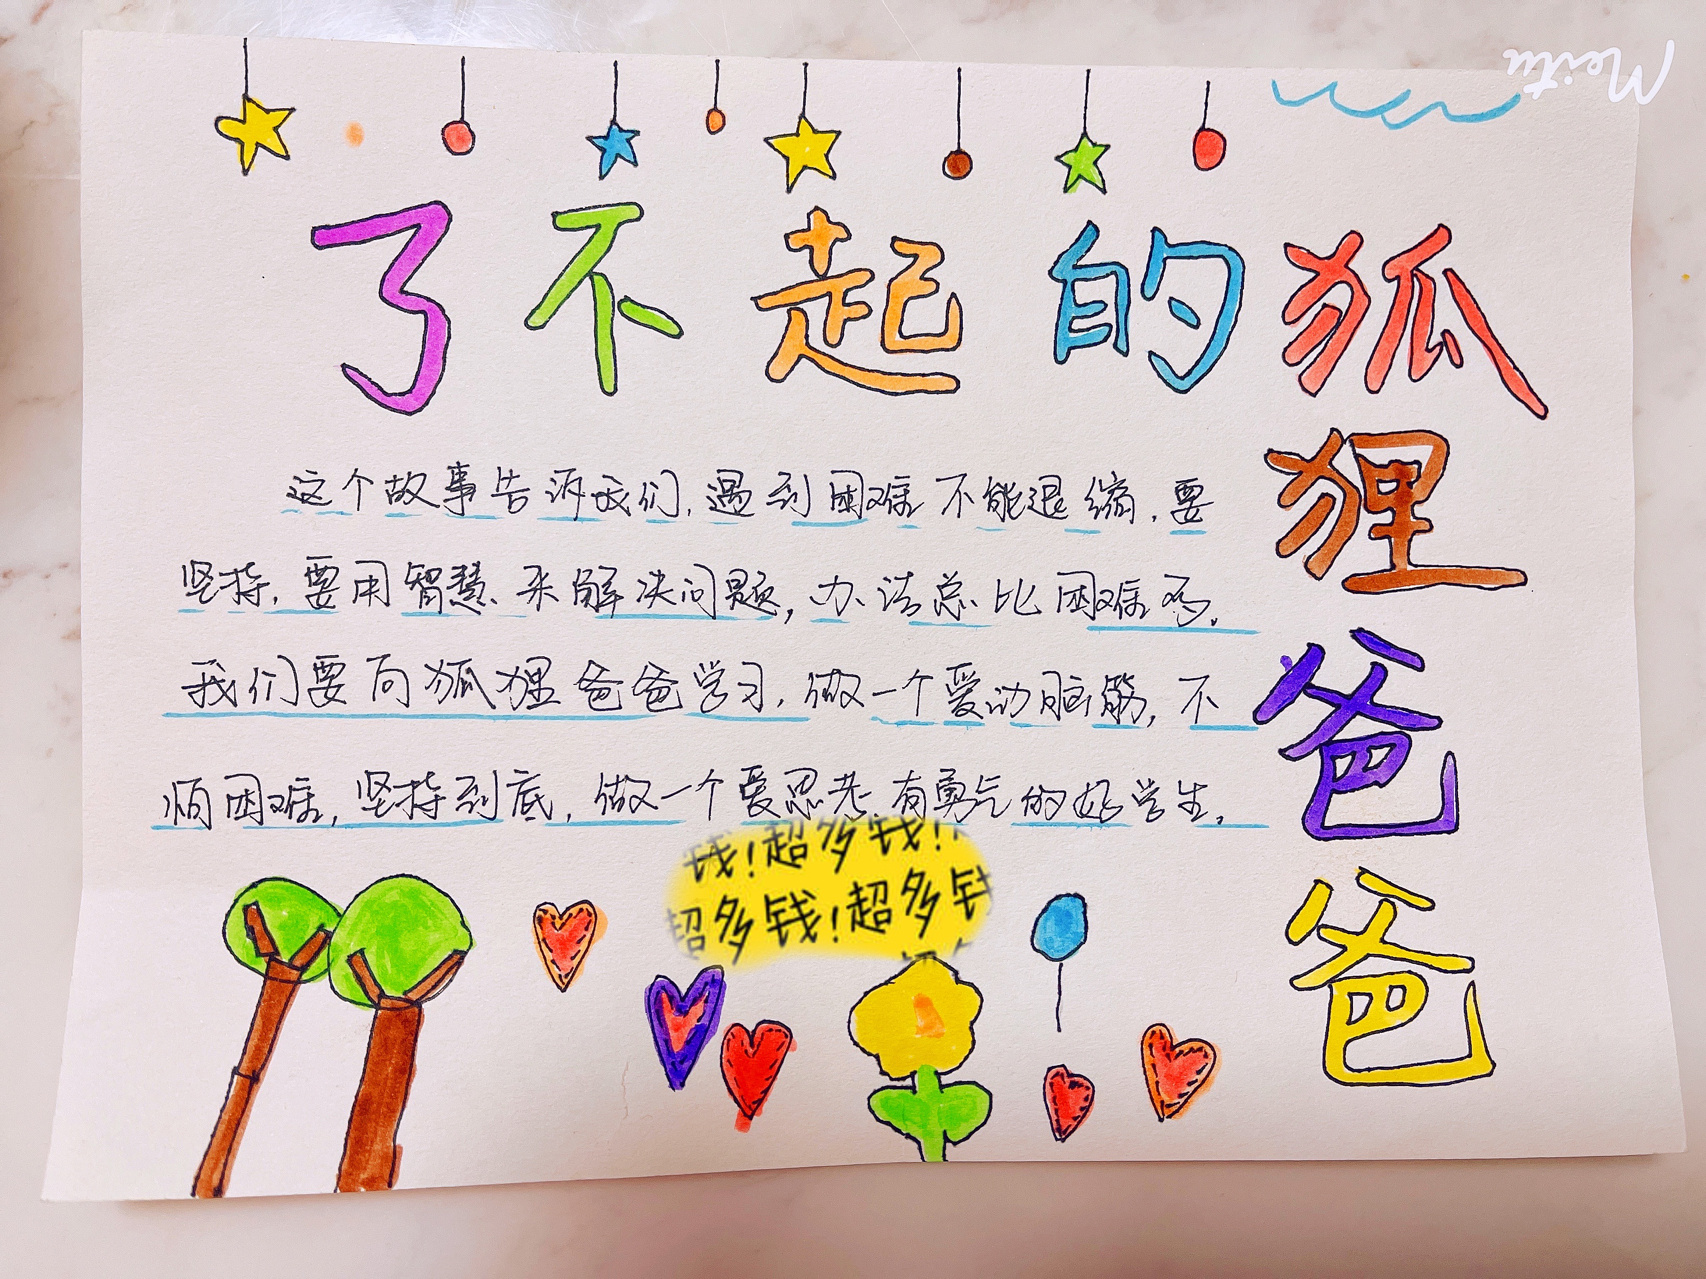 Meitu
了不起的狐
狸
爸
爸
这个故事告诉我们,遇到困难不能退缩,要
坚持,要用智慧、来解决问题,办法总比困难多。
我们要向狐狸爸爸学习,做一个爱动脑筋,不
烦困难,坚持到底,做一个爱思考、有勇气的好学生。
钱!超多钱!
超多钱!超多钱